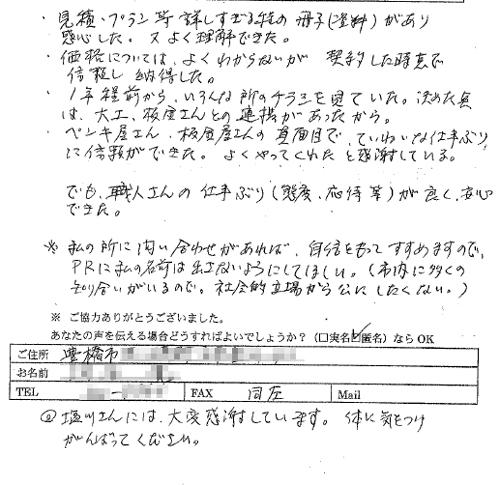 ・見積・プラン等 詳しすぎる程の冊子(資料)があり
感心した。又よく理解できた。
・価格については、よくわからないが 契約した時点で
信頼し 納得した。
・1年程前から、いろんな所のチラシを見ていた。決めた点
は、大工、板金屋さんとの連携があったから。
・ペンキ屋さん、板金屋さんの真面目で、ていねいな仕事ぶり
に信頼ができた。よくやってくれたと感謝している。
でも、職人さんの仕事ぶり(態度、応待等)が良く、安心
できた。
※ 私の所に問い合わせがあれば、自信をもってすすめますので、
PRに私の名前は出さないようにしてほしい。(市内に多くの
知り合いがいるので。社会的立場から公にしたくない。)
※ ご協力ありがとうございました。
あなたの声を伝える場合どうすればよいでしょうか?(□実名☑匿名)ならOK
ご住所 豊橋市
お名前
TEL FAX 同左 Mail
◎塩川さんには、大変感謝しています。体に気をつけ
がんばってください。